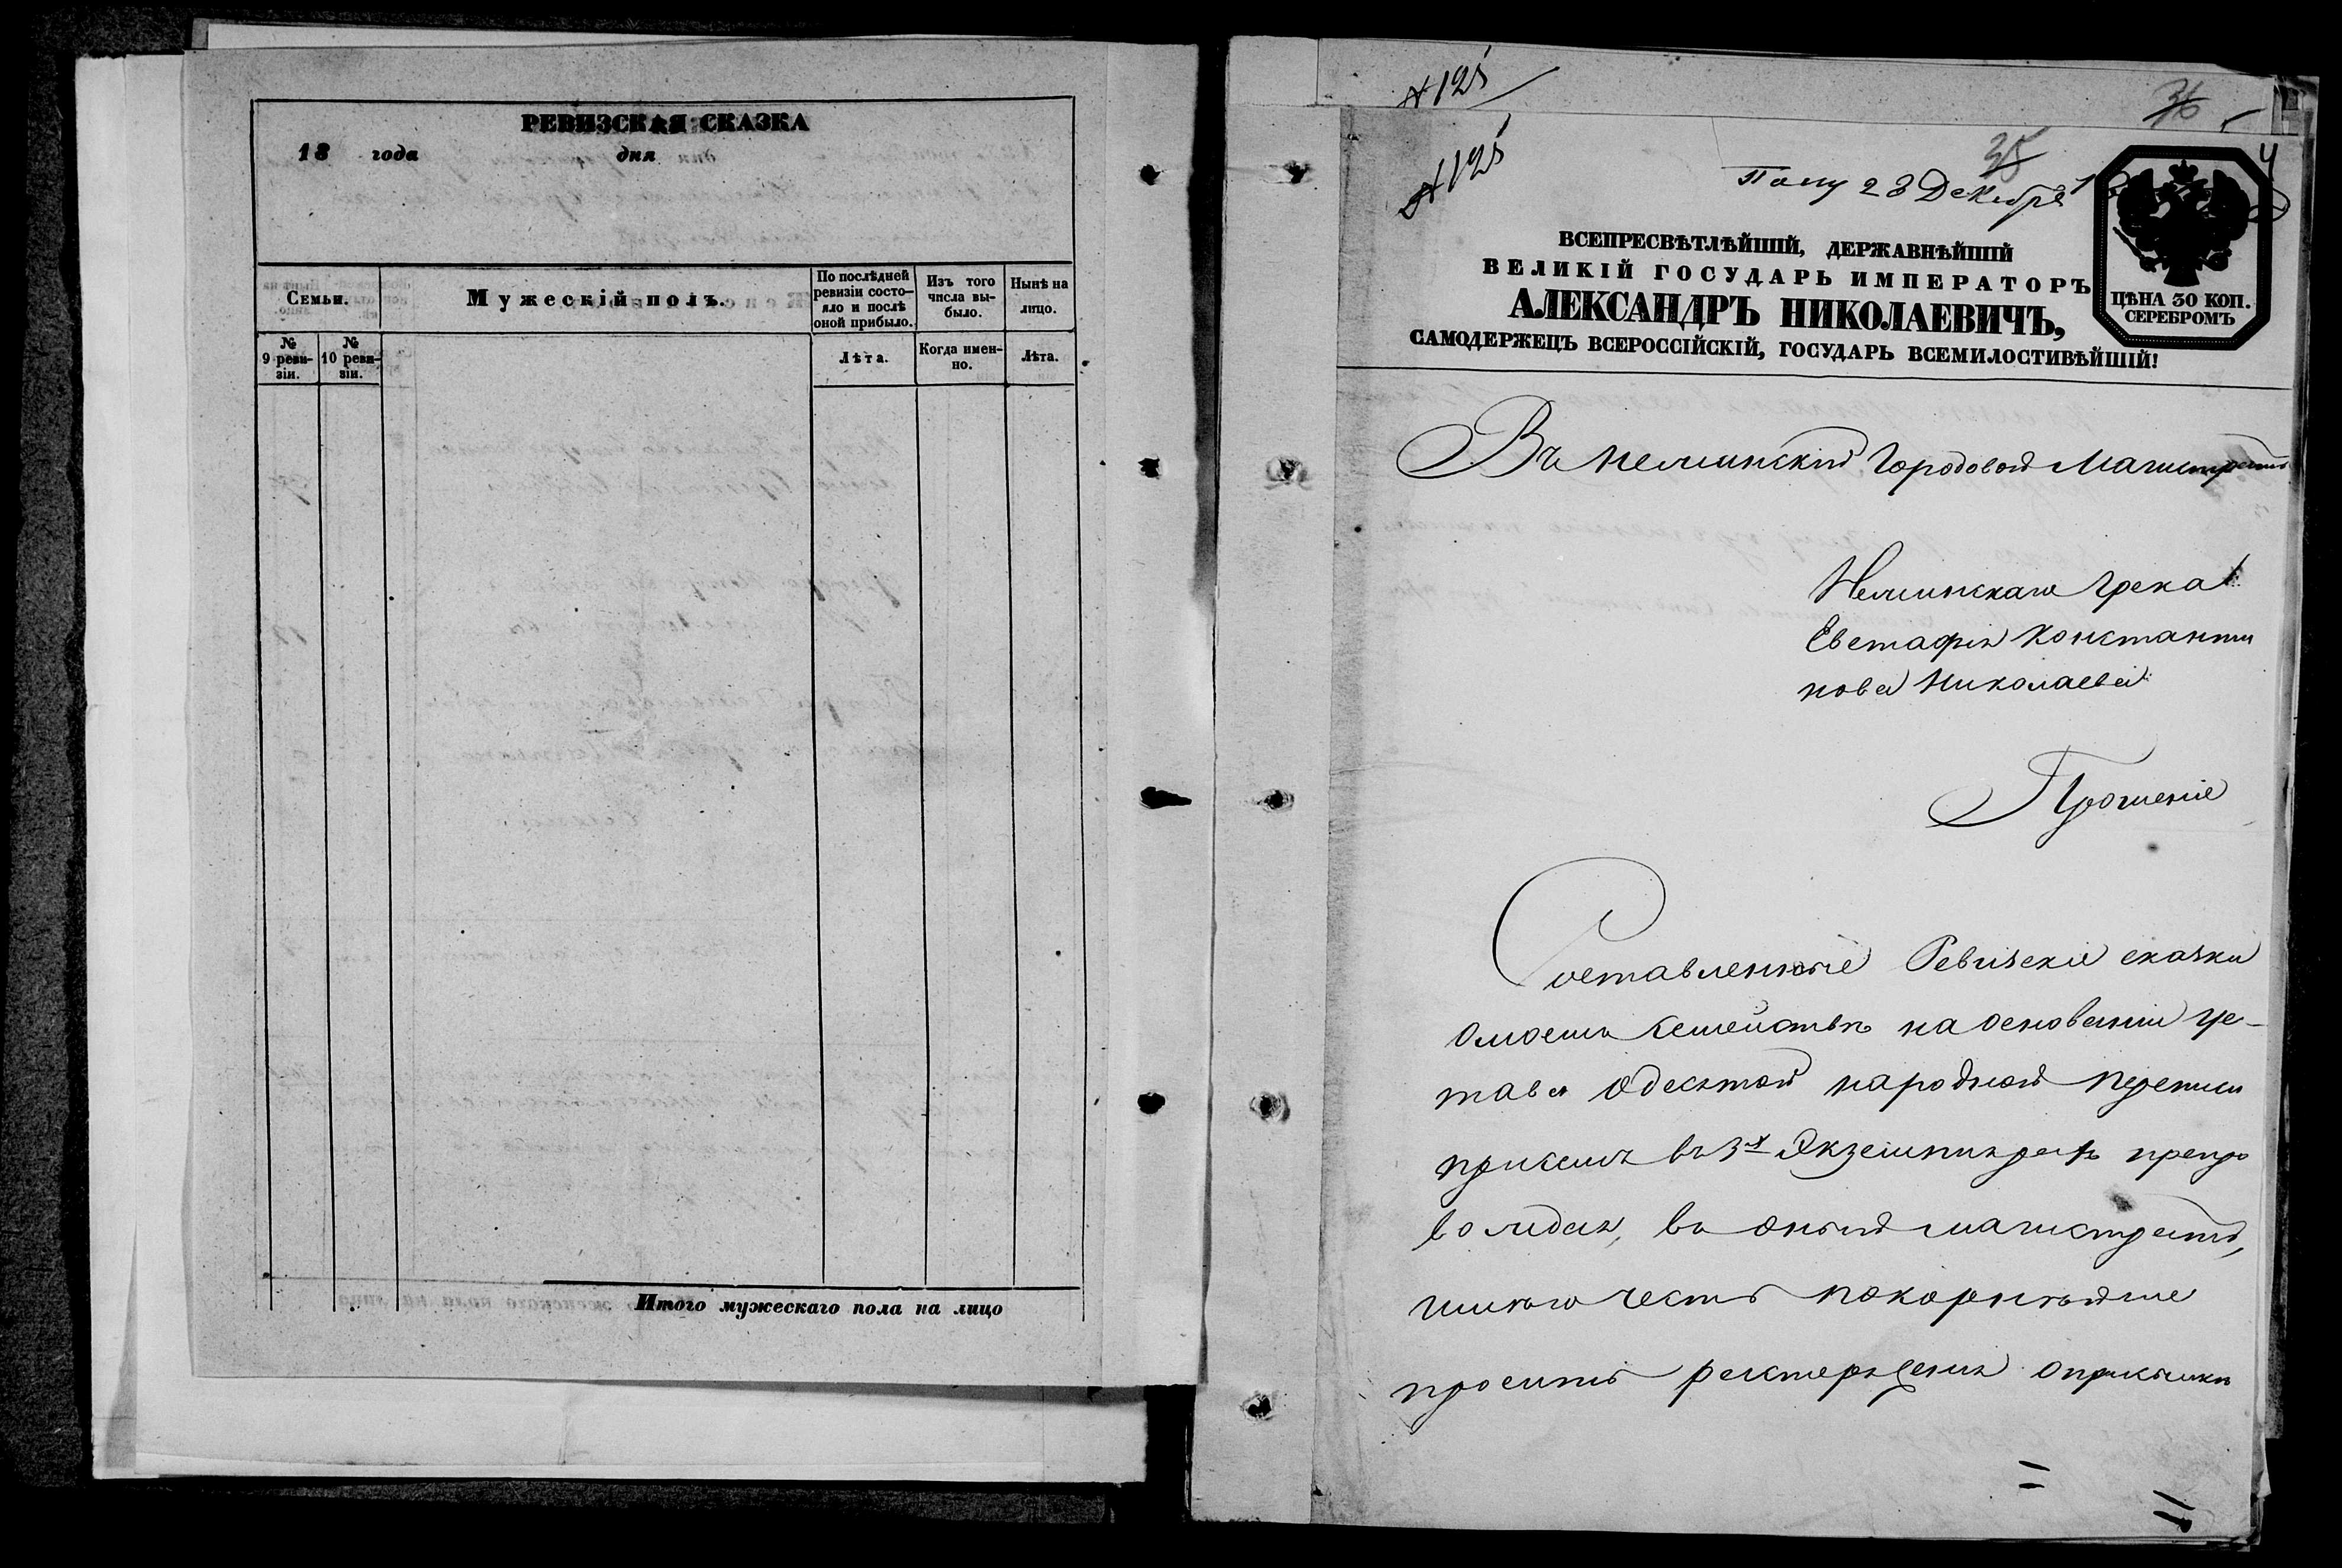 РЕВИЗСКАЯ СКАЗКА
18 года дня
Семьи.
Мужескій полъ.
По послѣдней
ревизіи состо-
яло и послѣ
оной прибыло.
Изъ того
числа вы-
было.
Нынѣ на
лицо.
№
9 реви-
зіи.
№
10 реви-
зіи.
Лѣта.
Когда имен-
но.
Лѣта.
Итого мужескаго пола на лицо
№ 125
36
№ 125
35
4
Полу 23 Декабря
ВСЕПРЕСВѢТЛѢЙШІЙ, ДЕРЖАВНѢЙШІЙ
ВЕЛИКІЙ ГОСУДАРЬ ИМПЕРАТОРЪ
АЛЕКСАНДРЪ НИКОЛАЕВИЧЪ,
САМОДЕРЖЕЦЪ ВСЕРОССІЙСКІЙ, ГОСУДАРЬ ВСЕМИЛОСТИВѢЙШІЙ!
ЦѢНА 30 КОП.
СЕРЕБРОМЪ
Въ Нежинскій Городовой Магистратъ
Нежинскаго Грека
Евстафія Константи
нова Николаева
Прошеніе
Составленные Ревизскіе сказки
омоемъ семействѣ на основаніи ус-
тава Одесятой народной переписи
присемъ въ 3х Экземплярахъ препро
вождая, въ оный магистратъ,
имѣю честь покорнѣйше
просить распоряженія опріемкѣ